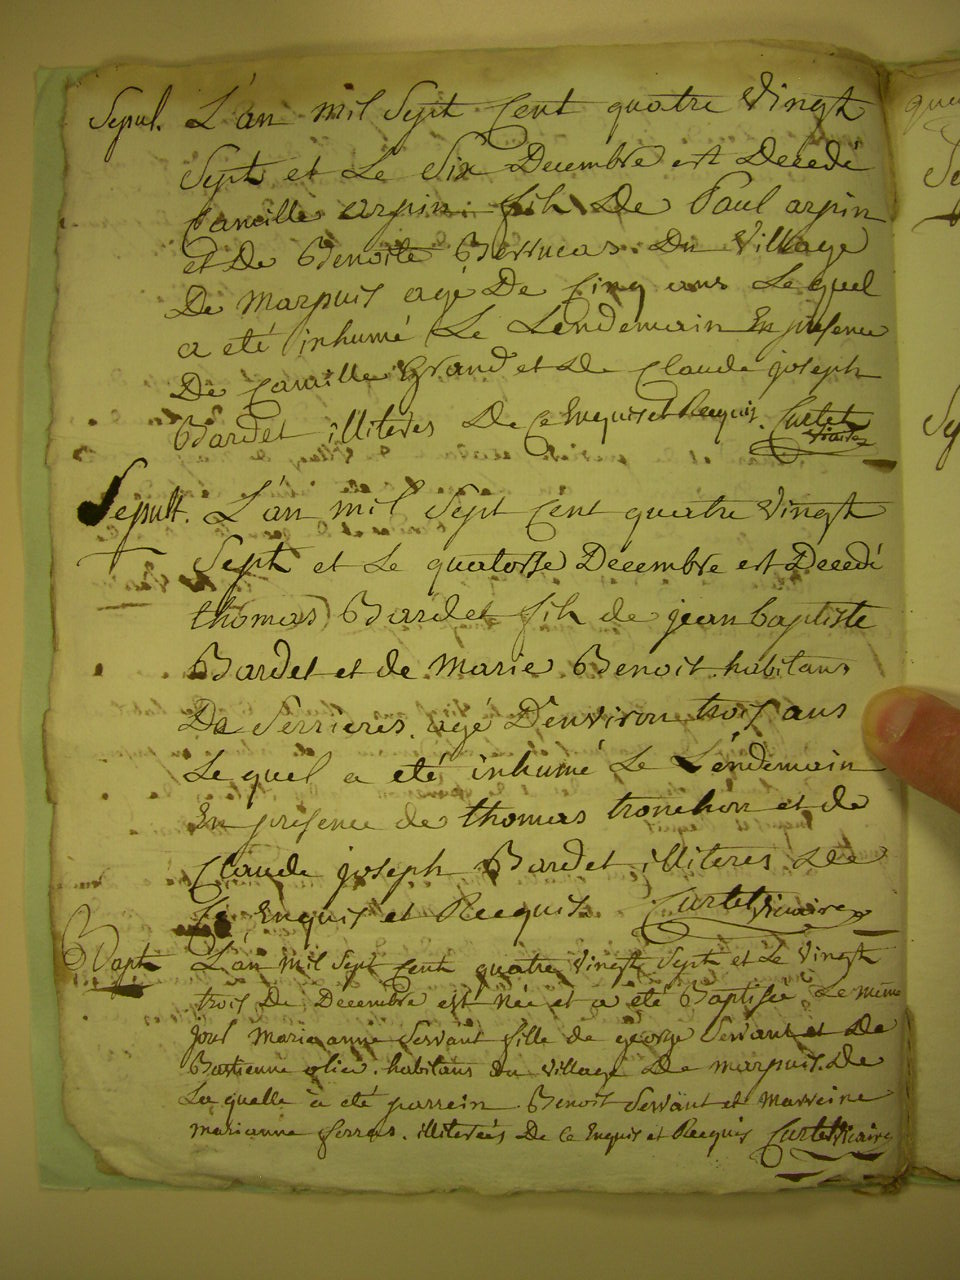 Sepul. L'an mil Sept Cent quatre Vingt
Sept et Le Six Decembre est Decedé
Camille arpin fils De Paul arpin
et De Benoite Du Village
De marpuis agé De Cinq ans Lequel
a eté inhumé Le Lendemain En presence
De Camille Grand et De Claude joseph
Bardet illiterés De Ce Enquis et Recquis. Curtet
vicaire
Sepult. L'an mil Sept Cent quatre Vingt
Sept et Le quatorse Decembre est Decedé
thomas Bardet fils de jean baptiste
Bardet et de Marie Benoit habitans
De Serrieres. agé D'environ trois ans
Le quel a eté inhumé Le Lendemain
En presence de thomas tronchon et de
Claude joseph Bardet illiteres De
Ce Enquis et Recquis Curtet Vicaire
Bapt L'an mil Sept Cent quatre Vingt Sept et Le Vingt
trois De Decembre est Née et a été Baptisée Le même
jour Marieanne Servant fille de george Servant et De
Bastienne olier habitans du Village De marpuis. De
La quelle a eté parrein Benoit Servant et Marreine
marianne ferras. illiterés De Ce Enquis et Recquis Curtet Vicaire